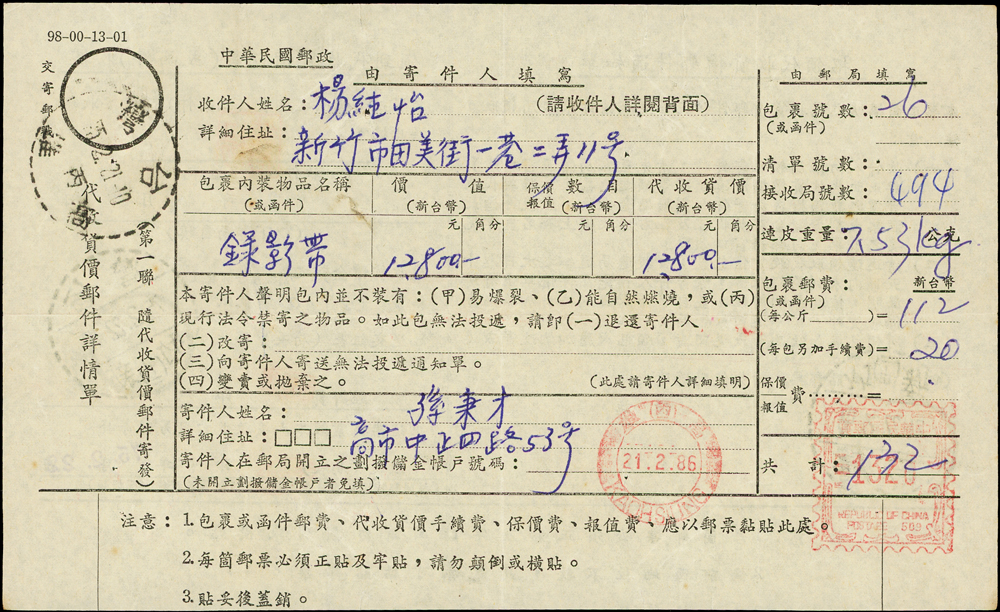 98-00-13-01
中華民國郵政
由寄件人填寫
收件人姓名：楊純怡 （請收件人詳閱背面）
詳細住址：新竹市田美街一巷二弄11号
包裹內裝物品名稱（或函件） 價值（新台幣） 保價報值數目（新台幣） 代收貨價（新台幣）
元 角分 元 角分 元 角分
錄影帶 12,800.- 12,800.-
本寄件人聲明包內並不裝有：（甲）易爆裂、（乙）能自然燃燒，或（丙）
現行法令禁寄之物品。如此包無法投遞，請即（一）退還寄件人
（二）改寄：
（三）向寄件人寄送無法投遞通知單。
（四）變賣或拋棄之。 （此處請寄件人詳細填明）
寄件人姓名： 孫秉才
詳細住址：□□□ 高市中正四路53号
寄件人在郵局開立之劃撥儲金帳戶號碼：
（未開立劃撥儲金帳戶者免填）
由郵局填寫
包裹號數：26
（或函件）
清單號數：
接收局號數：494
連皮重量：7.53kg 公克
包裹郵費： 新台幣
（或函件）
（每公斤 ）= 112
（每包另加手續費）= 20
保價報值費：………=
共計：132
交寄郵戳
代收貨價郵件詳情單
（第一聯 隨代收貨價郵件寄發）
台灣
高雄
21.2.86
KAOHSIUNG
REPUBLIC OF CHINA
POSTAGE
注意：1.包裹或函件郵費、代收貨價手續費、保價費、報值費、應以郵票黏貼此處。
2.每箇郵票必須正貼及牢貼，請勿顛倒或橫貼。
3.貼妥後蓋銷。